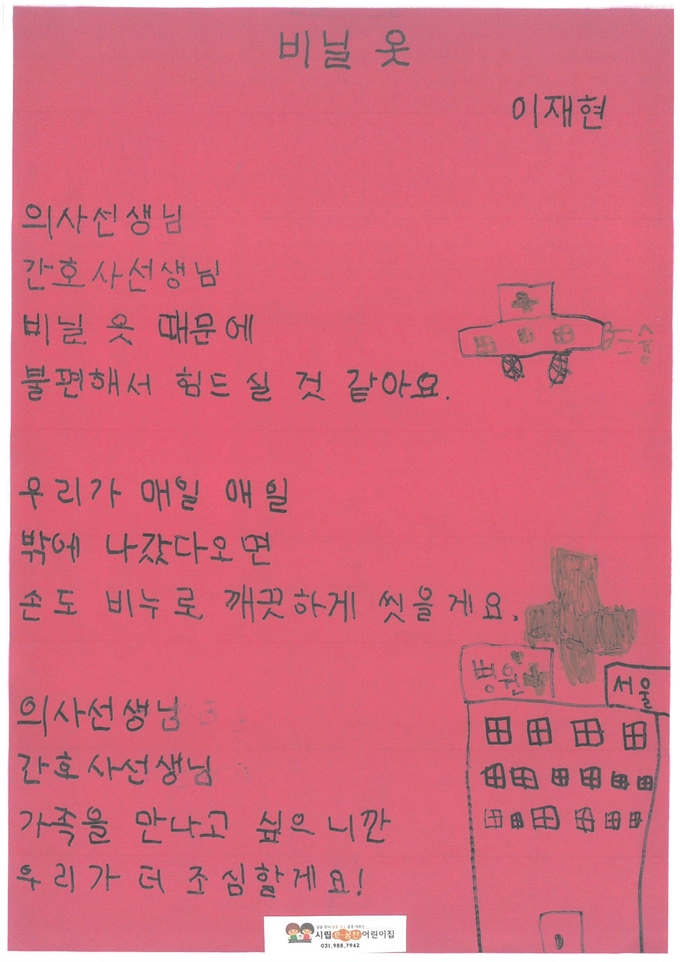 비닐 옷
이재현
의사선생님
간호사선생님
비닐 옷 때문에
불편해서 힘드실 것 같아요.
슝
우리가 매일 매일
밖에 나갔다오면
손도 비누로 깨끗하게 씻을게요.
병원
서울
의사선생님
간호사선생님
가족을 만나고 싶으니깐
우리가 더 조심할게요!
시립 어린이집
031.988.7942